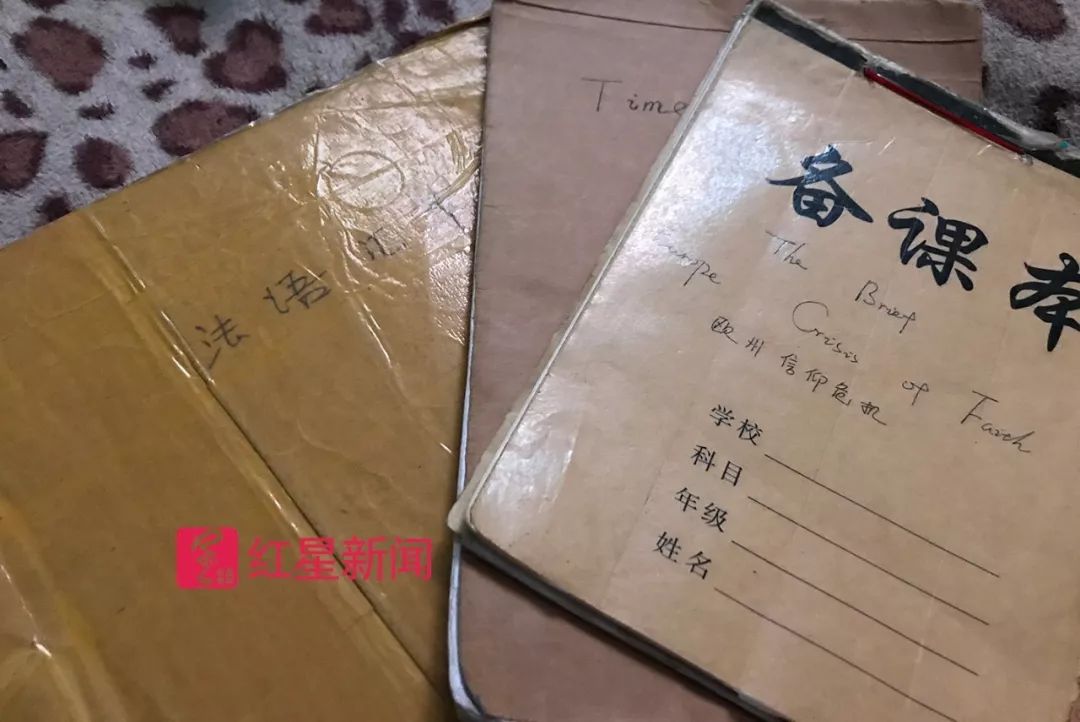 ①
法语汇
Time
备课本
The Brief
Europe Crisis of Faith
欧州信仰危机
学校
科目
年级
姓名
红星新闻